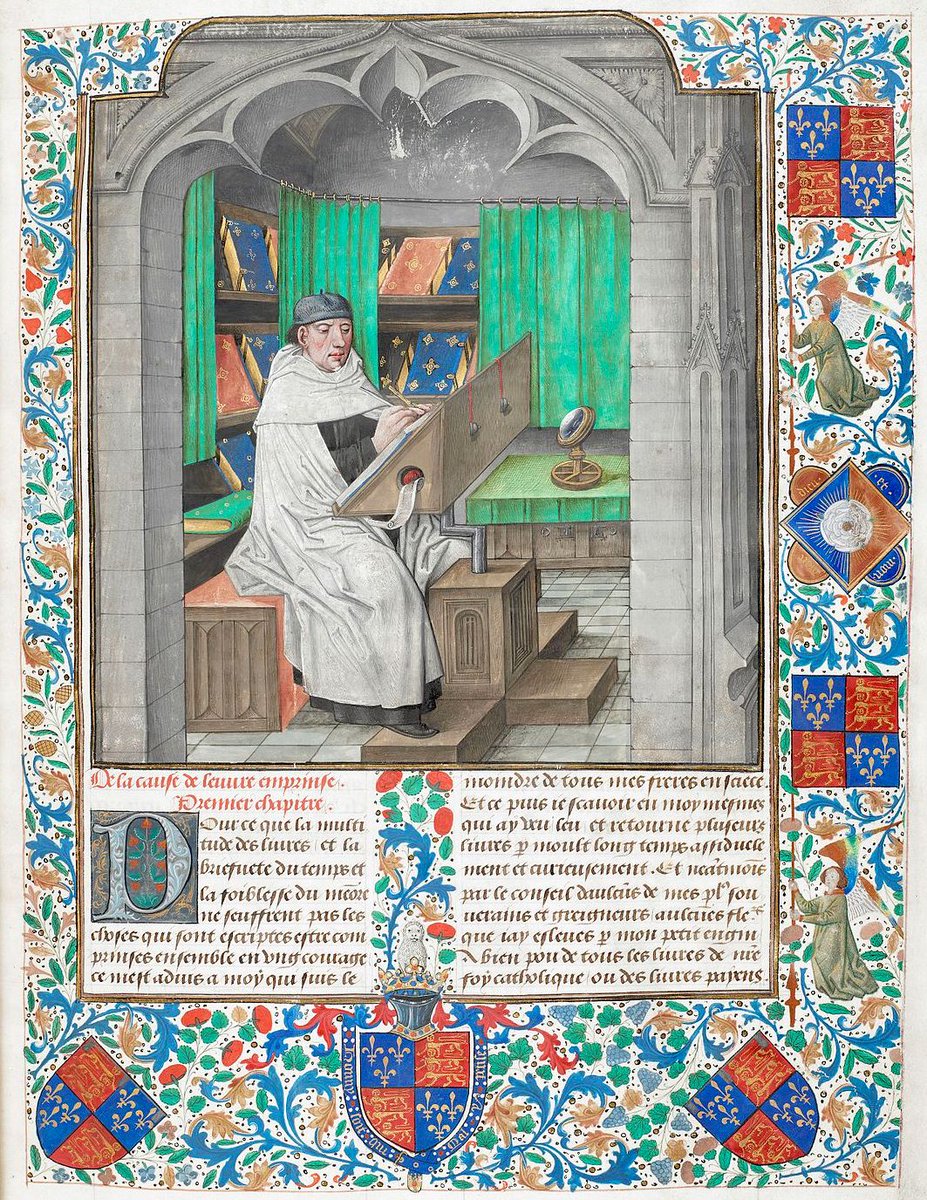 De la cause de leuure emprinse.
Premier chapitre.
Pour ce que la multi
tude des liures et la
briefuete du temps et
la foiblesse du memore
ne seuffrent pas les
choses qui sont escriptes estre com
prinses ensemble en vng courage
ce mest aduis a moy qui suis le
moindre de tous mes freres en sciece
Et ce puis ie scauoir en moy mesmes
qui ay veu leu et retourne plusieurs
liures p moult long temps assiduele
ment et curieusement. Et neatmois
par le conseil daulcuns de mes plꝰ sou
uerains et greigneurs
que iay esleues p mon petit engin
A bien pou de tous les liures de nre
foy catholique ou des liures payens
dieu et
mon